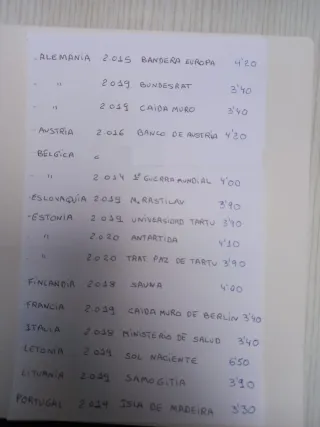 - ALEMANIA 2.015 BANDERA EUROPA 4'20
- " 2019 BUNDESRAT 3'40
- " 2019 CAIDA MURO 3'40
- AUSTRIA 2.016 BANCO DE AUSTRIA 4'20
BELGICA
- " 2.014 1ª GUERRA MUNDIAL 4'00
- ESLOVAQUIA 2019 M. RASTILAV 3'90
- ESTONIA 2.019 UNIVERSIDAD TARTU 3'90
- " 2.020 ANTARTIDA 4'10
- " 2.020 TRAT. PAZ DE TARTU 3'90
FINLANDIA 2.018 SAUNA 4'00
FRANCIA 2.019 CAIDA MURO DE BERLIN 3'40
ITALIA 2.018 MINISTERIO DE SALUD 3'40
LETONIA 2.019 SOL NACIENTE 6'50
LITUANIA 2.019 SAMOGITIA 3'90
PORTUGAL 2.019 ISLA DE MADEIRA 3'30